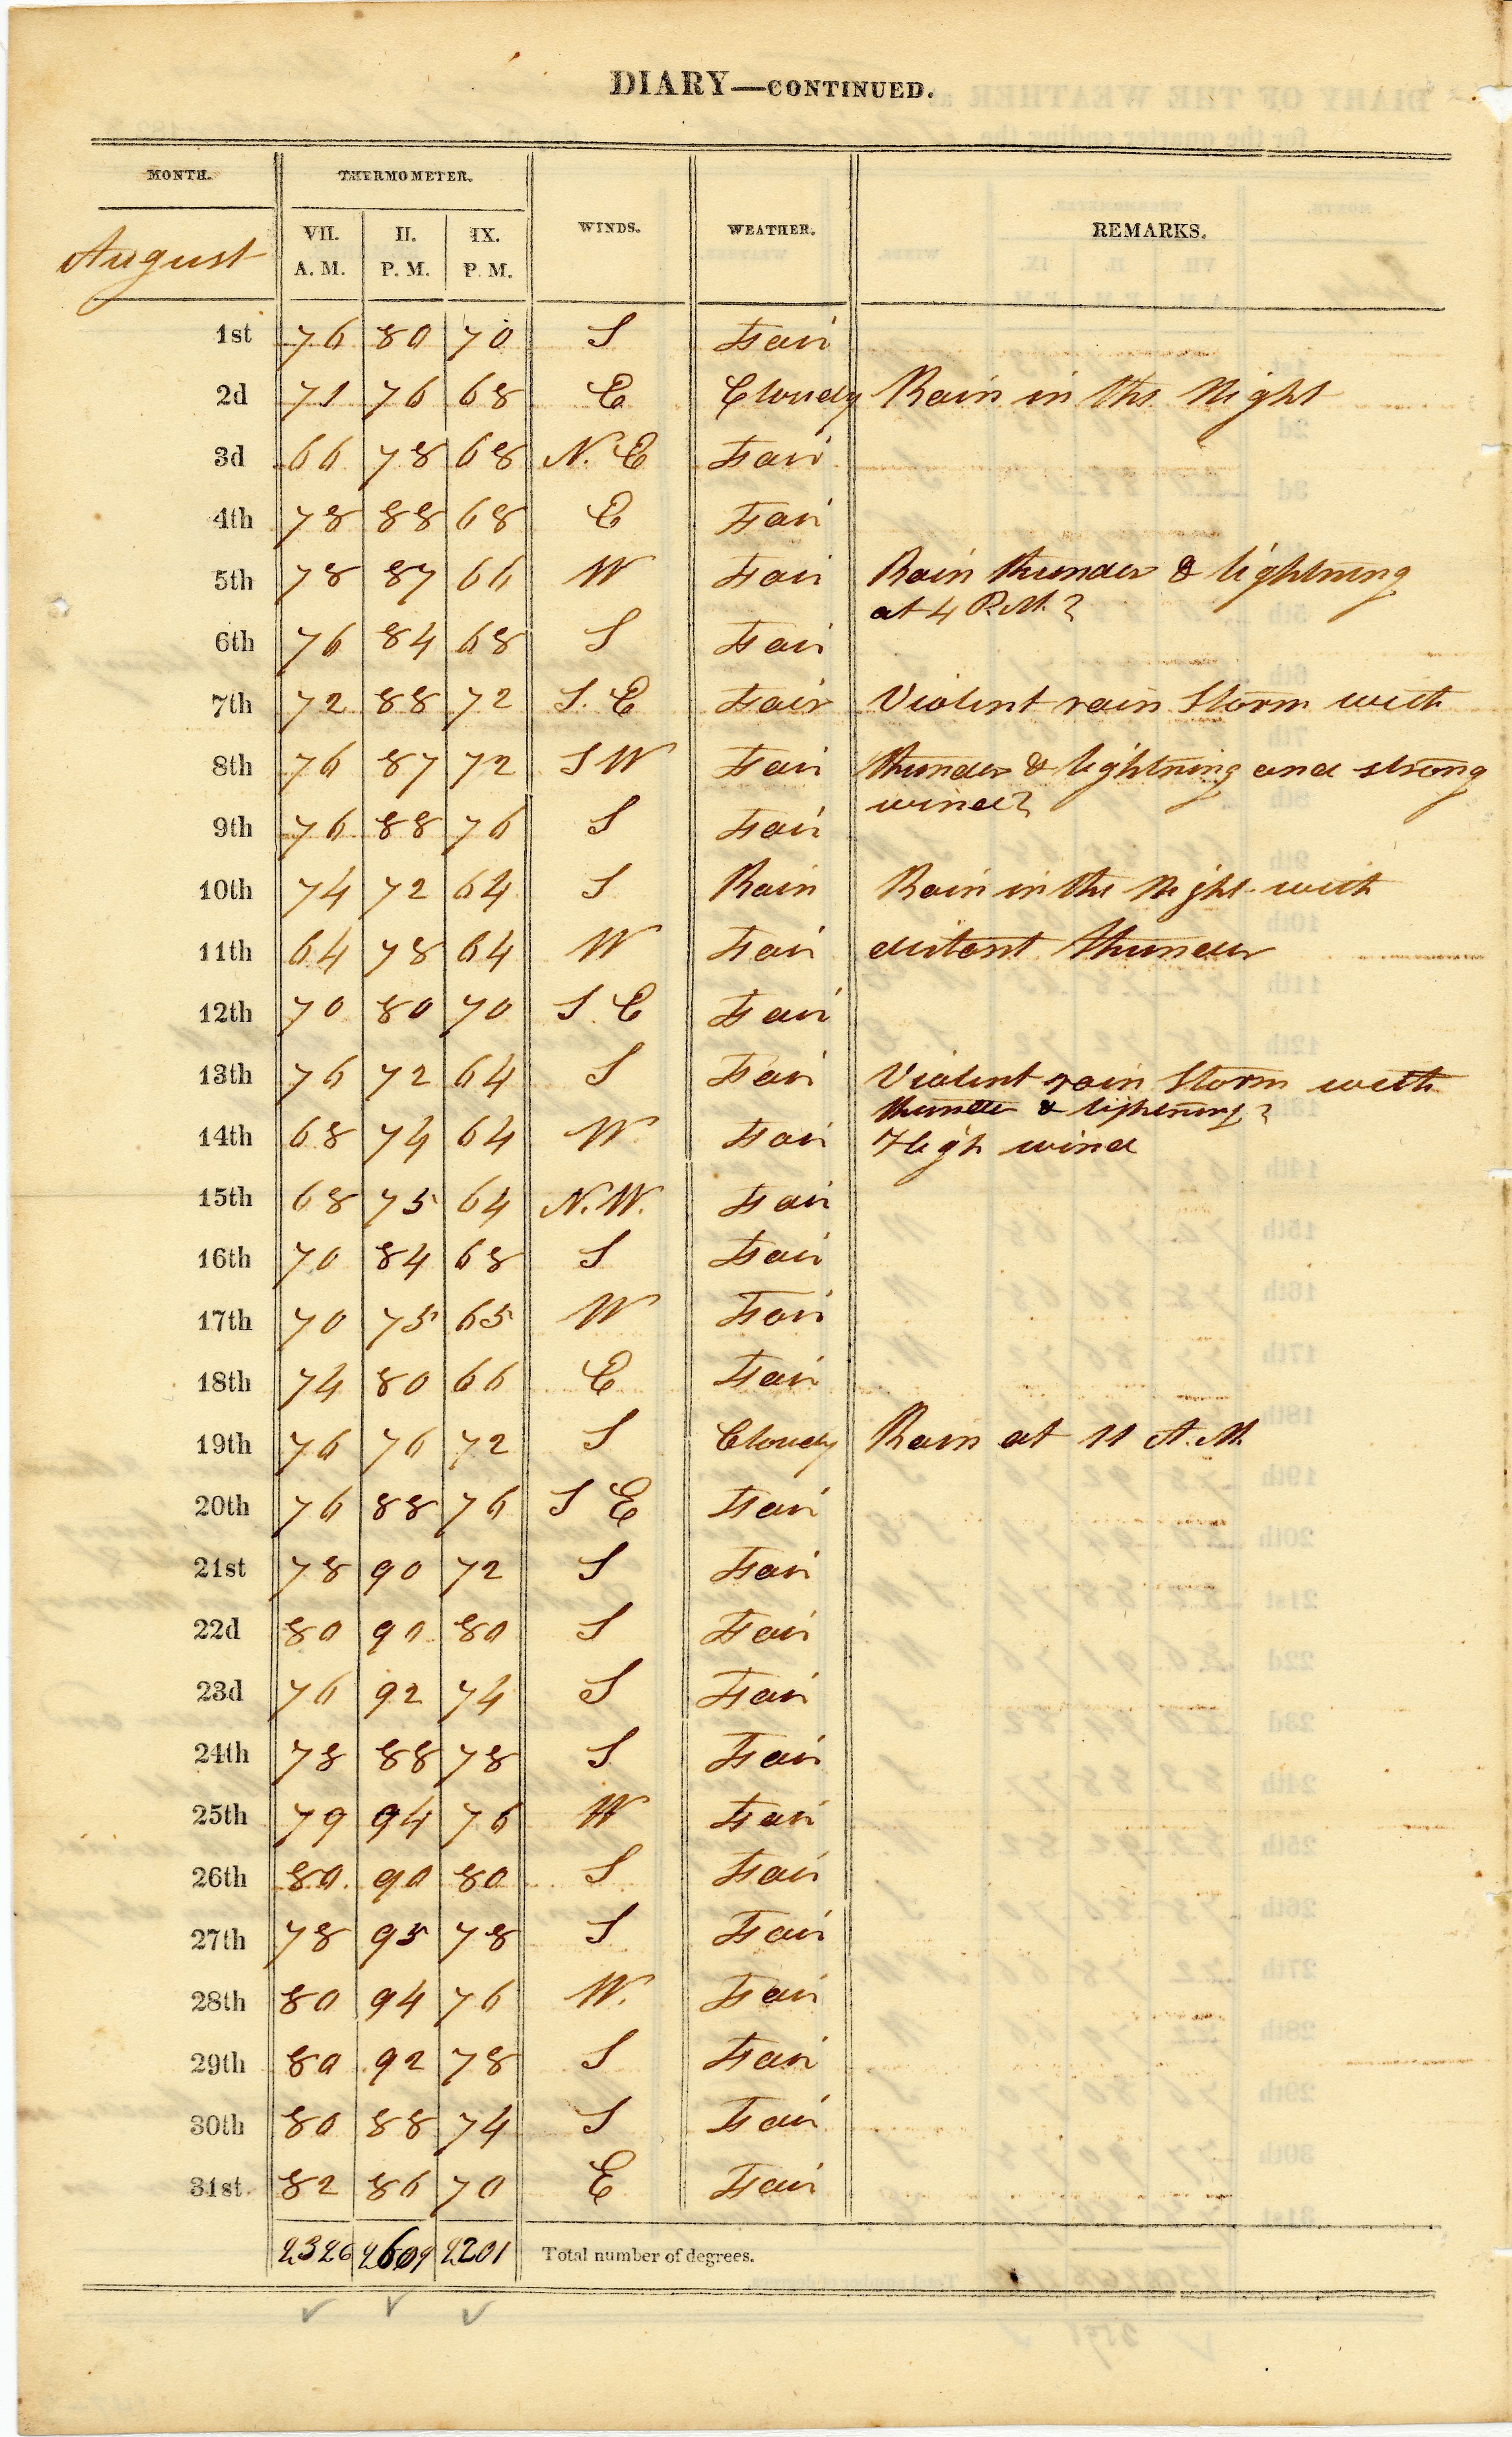 DIARY—CONTINUED.
MONTH. THERMOMETER. WINDS. WEATHER. REMARKS.
August VII. A. M. II. P. M. IX. P. M.
1st 76 80 70 S Fair
2d 71 76 68 E Cloudy Rain in the Night
3d 66 78 68 N. E Fair
4th 78 88 68 E Fair
5th 78 87 66 W Fair Rain thunder & lightning
at 4 P.M.
6th 76 84 68 S Fair
7th 72 88 72 S. E Fair Violent rain Storm with
8th 76 87 72 S W Fair thunder & lightning and strong
wind
9th 76 88 76 S Fair
10th 74 72 64 S Rain Rain in the Night with
11th 64 78 64 W Fair distant thunder
12th 70 80 70 S. E Fair
13th 76 72 64 S Fair Violent rain Storm with
thunder & lightning
14th 68 74 64 W. Fair High wind
15th 68 75 64 N. W. Fair
16th 70 84 68 S Fair
17th 70 75 65 W Fair
18th 74 80 66 E Fair
19th 76 76 72 S Cloudy Rain at 11 A. M.
20th 76 88 76 S E Fair
21st 78 90 72 S Fair
22d 80 90 80 S Fair
23d 76 92 74 S Fair
24th 78 88 78 S Fair
25th 79 94 76 W Fair
26th 80 90 80 S Fair
27th 78 95 78 S Fair
28th 80 94 76 W. Fair
29th 80 92 78 S Fair
30th 80 88 74 S Fair
31st 82 86 70 E Fair
2326 2609 2201 Total number of degrees.